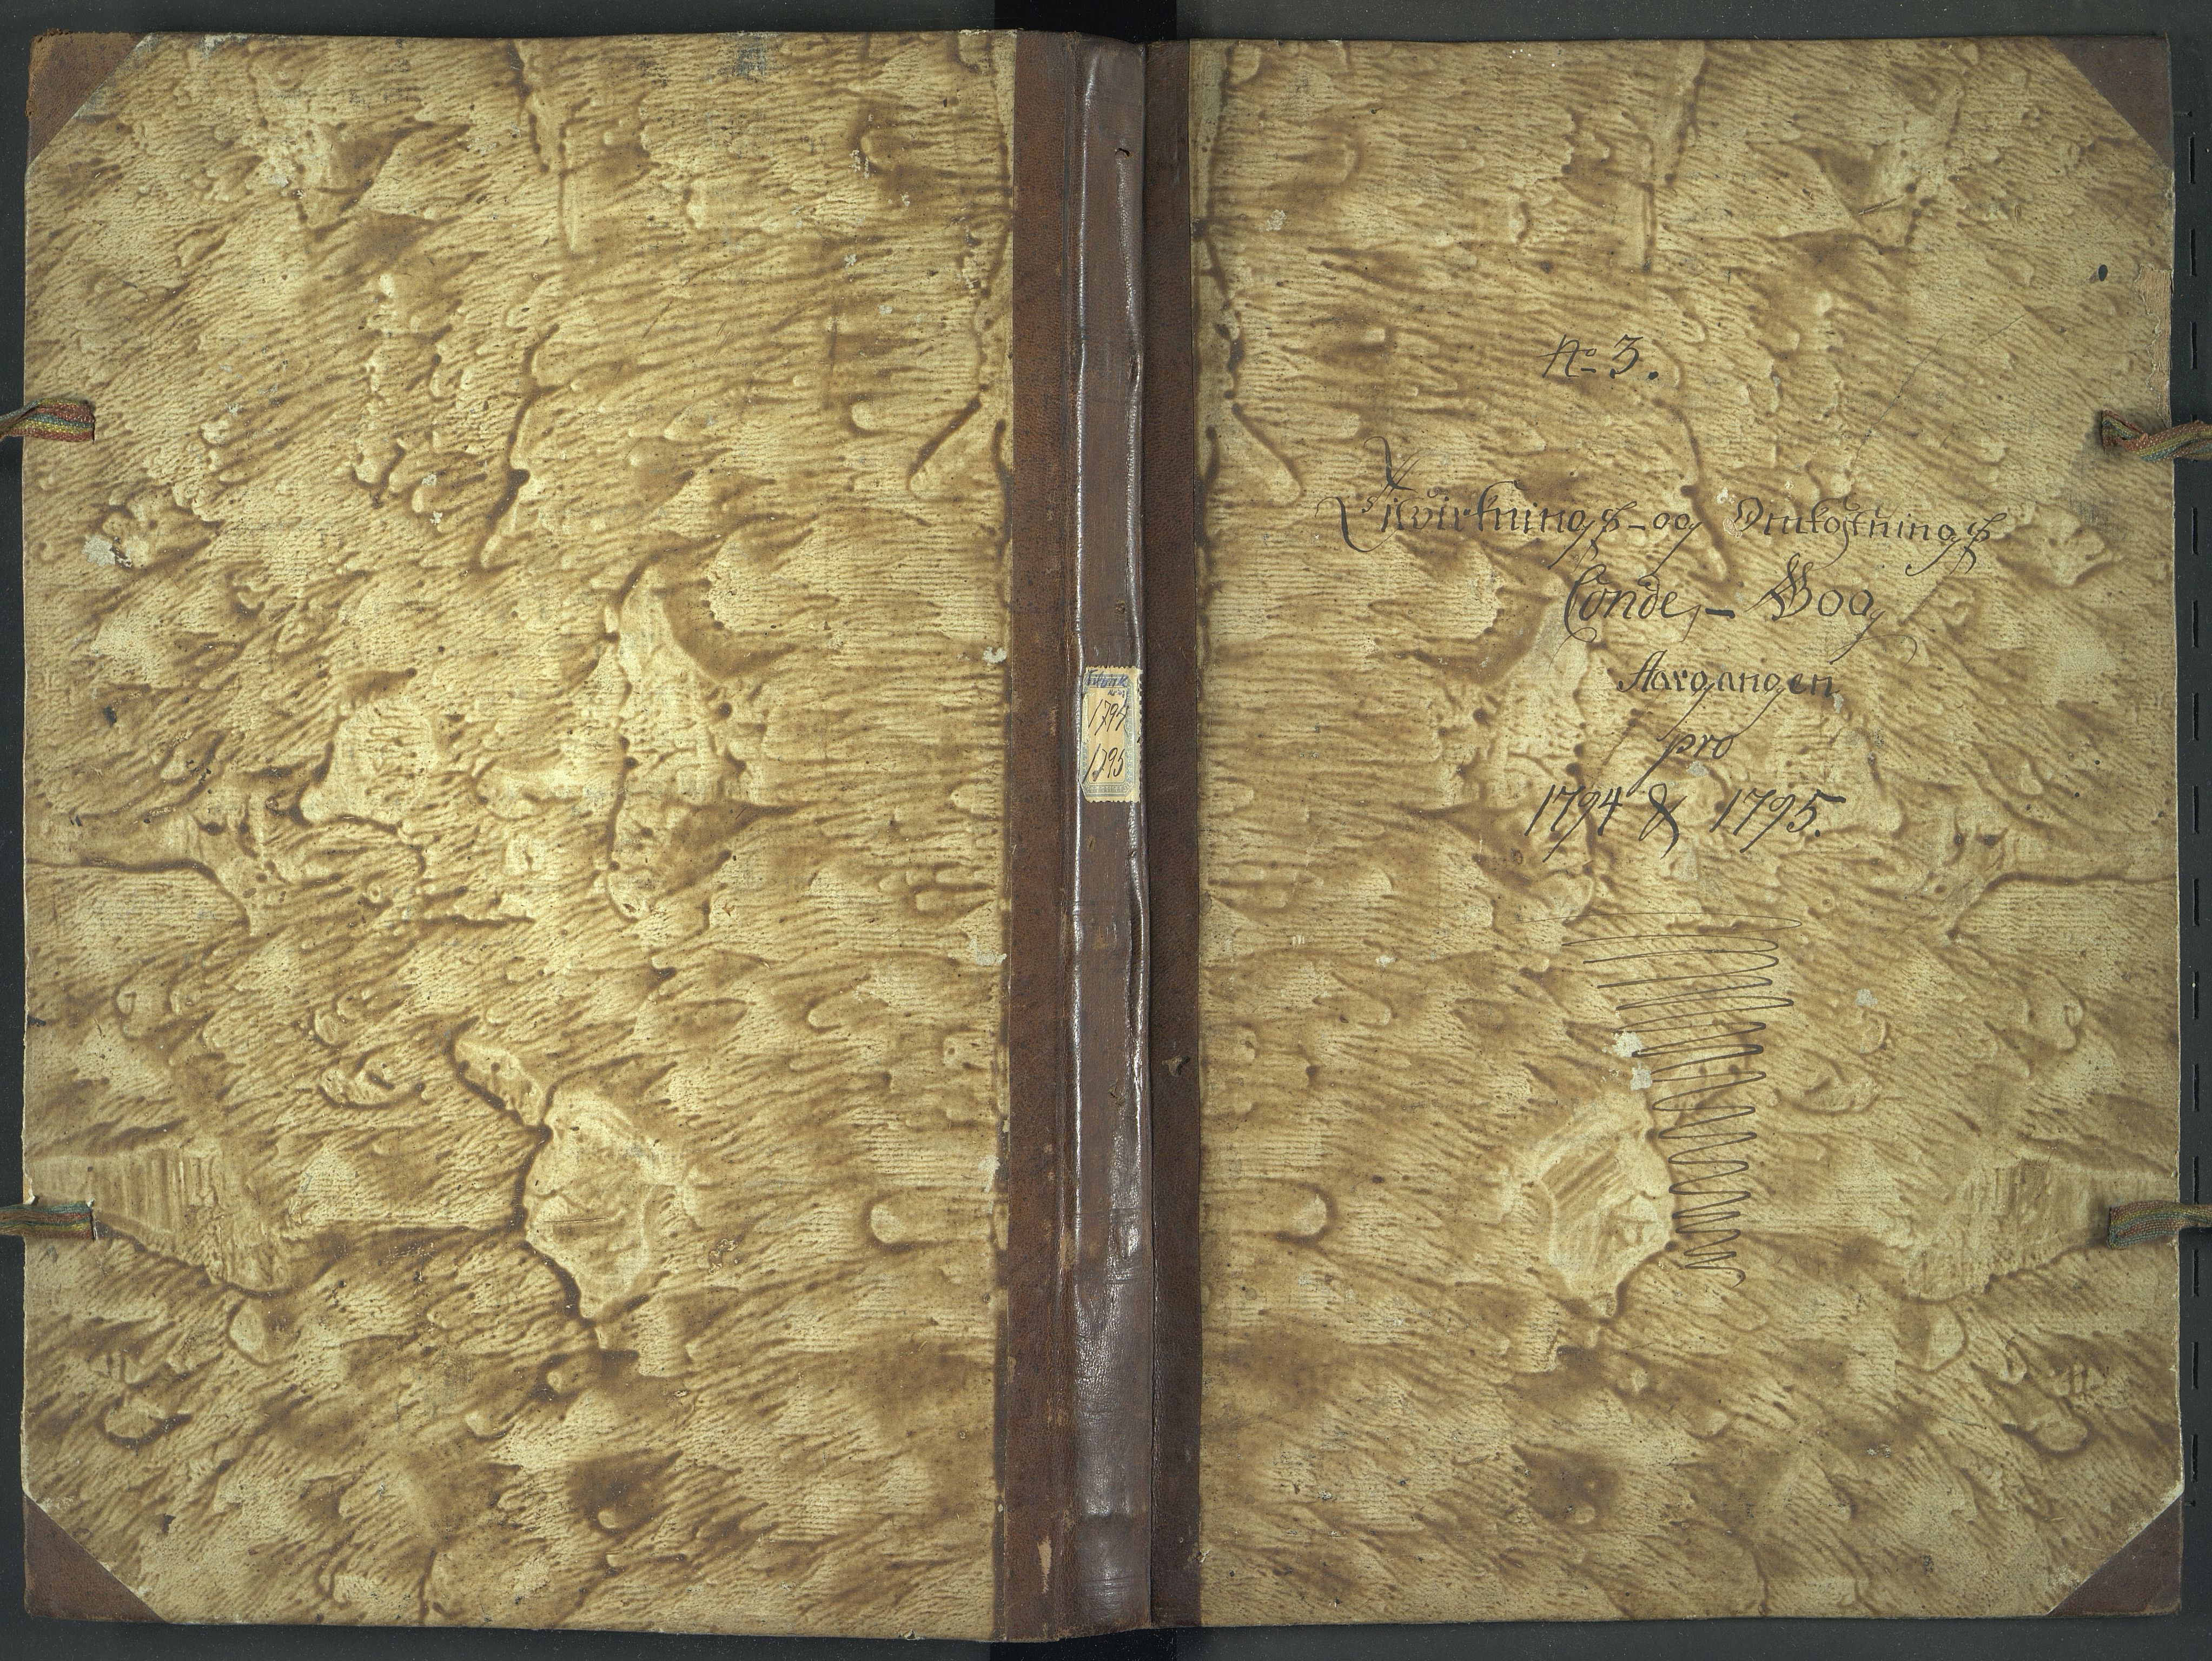 No 3.
Tilvirknings-og Omkostnings
Conde,- Bog
Aargangen
pro
1794 & 1795.
1794
1795